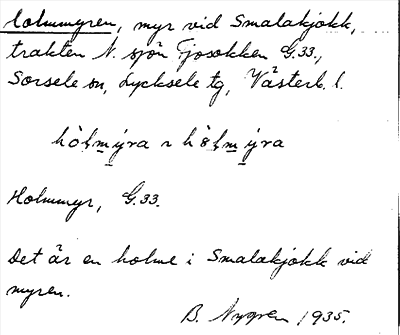 Holmmyren, myr vid Smalakjokk,
trakten N. sjön Fjosokken G.33.,
Sorsele sn, Lycksele tg, Västerb. l.
hòlmýra ~ hòlmýra
Holmmyr, G.33.
Det är en holme i Smalakjokk vid
myren.
B. Nygren 1935.